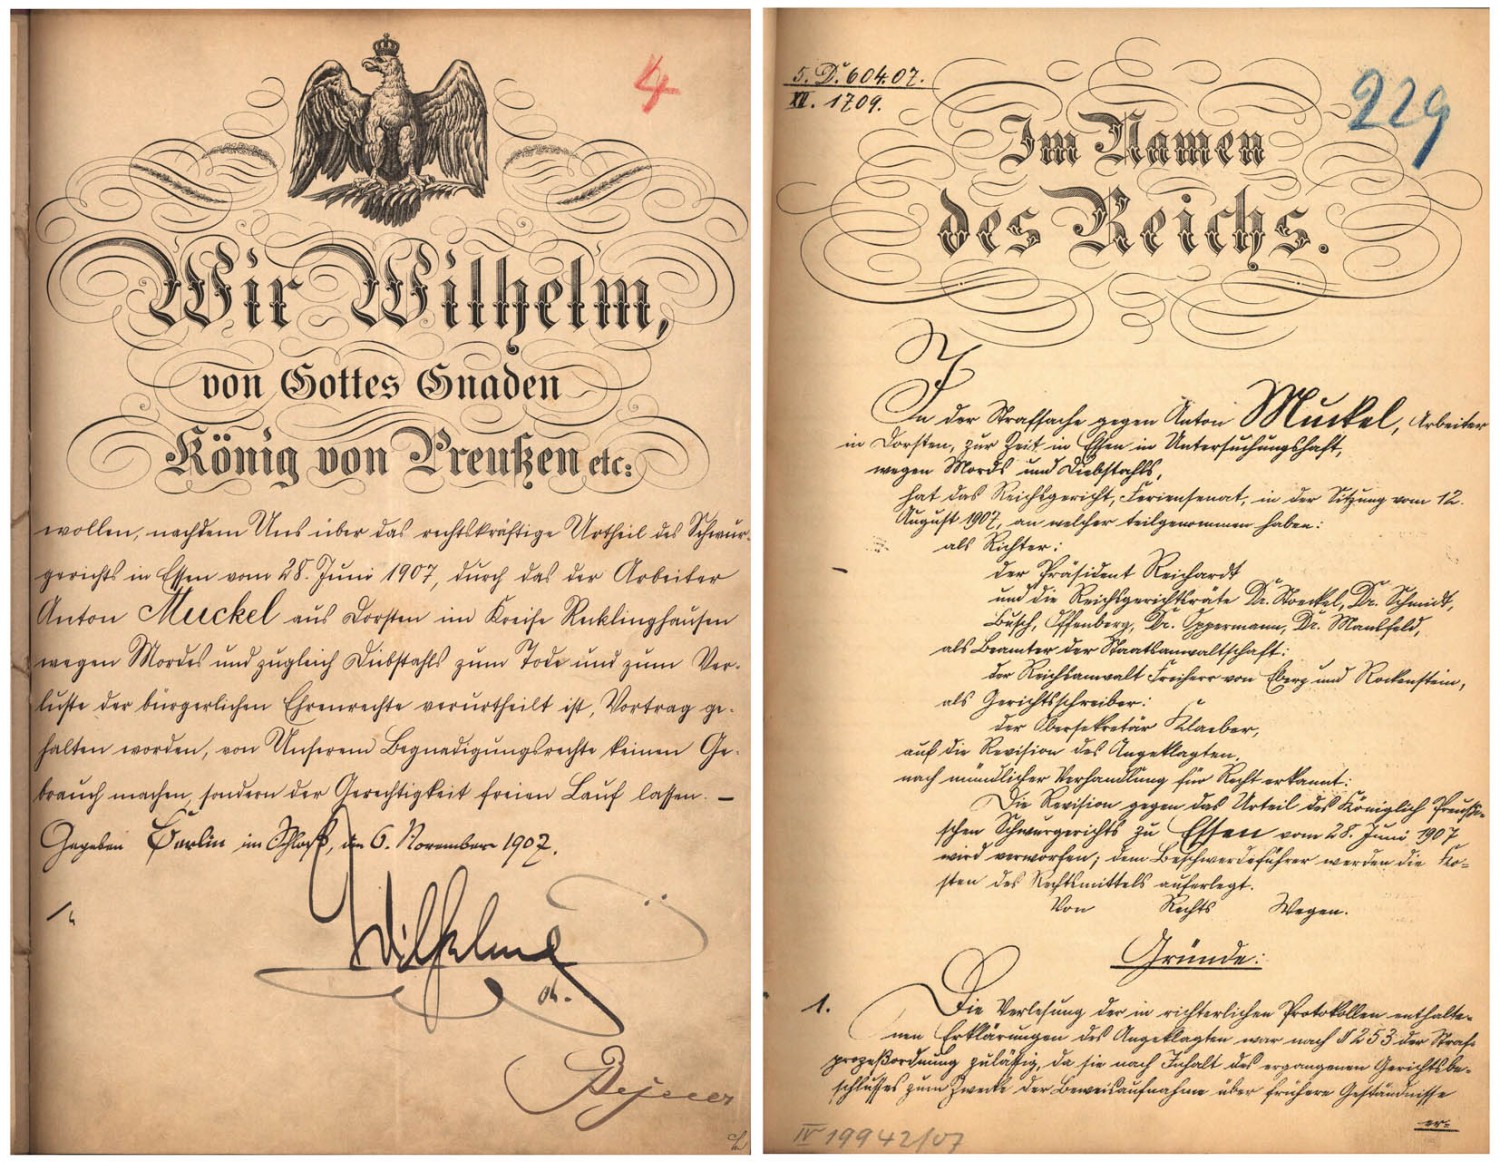 4
Wir Wilhelm,
von Gottes Gnaden
König von Preußen etc:
wollen, nachdem Uns über das rechtskräftige Urtheil des Schwur-
gerichts in Essen vom 28. Juni 1907, durch das der Arbeiter
Anton Muckel aus Dorsten im Kreise Recklinghausen
wegen Mordes und zugleich Diebstahls zum Tode und zum Ver-
luste der bürgerlichen Ehrenrechte verurtheilt ist, Vortrag ge-
halten worden, von Unserem Begnadigungsrechte keinen Ge-
brauch machen, sondern der Gerechtigkeit freien Lauf lassen. —
Gegeben Berlin im Schloß, den 6. November 1907.
Wilhelm
5. D. 604.07.
XII. 1709.
229
Im Namen
des Reichs.
In der Strafsache gegen Anton Muckel, Arbeiter
in Dorsten, zur Zeit in Essen in Untersuchungshaft,
wegen Mords und Diebstahls,
hat das Reichsgericht, Feriensenat, in der Sitzung vom 12.
August 1907, an welcher teilgenommen haben:
als Richter:
der Präsident Reichardt
und die Reichsgerichtsräte Dr. Stoeckel, Dr. Schmidt,
Busch, Offenberg, Dr. Oppermann, Dr. Mansfeld,
als Beamter der Staatsanwaltschaft:
der Reichsanwalt Freiherr von Eberz und Rockenstein,
als Gerichtsschreiber:
der Obersekretär Klaeber,
auf die Revision des Angeklagten,
nach mündlicher Verhandlung für Recht erkannt:
Die Revision gegen das Urteil des Königlich Preußi-
schen Schwurgerichts zu Essen vom 28. Juni 1907
wird verworfen; dem Beschwerdeführer werden die Ko-
sten des Rechtsmittels auferlegt.
Von Rechts Wegen.
Gründe:
1. Die Verlesung der in richterlichen Protokollen enthalte-
nen Erklärungen des Angeklagten war nach § 253 der Straf-
prozeßordnung zulässig, da sie nach Inhalt des ergangenen Gerichtsbe-
schlusses zum Zwecke der Beweisaufnahme über frühere Geständnisse
er-
IV 19942/07